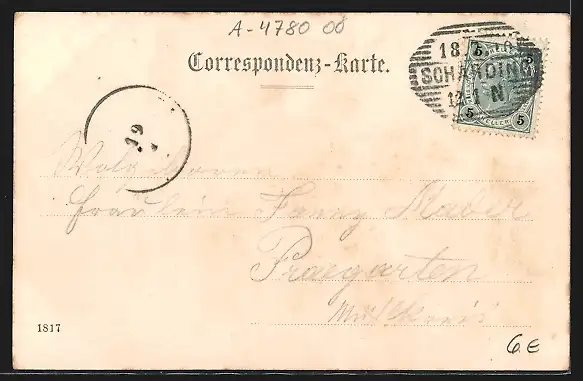 A-4780 00
Correspondenz-Karte.
18
SCHÄRDING
12-1 N
5 5
HELLER
5 5
19
Wolgeboren
Fräulein Fanny Maber
Praegarten
Mühlkreis
1817
6 €